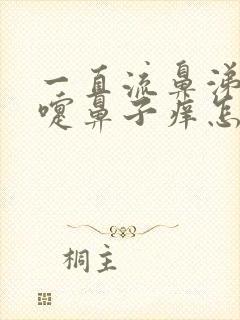 一直流鼻涕
嚏鼻子痒怎
桐主